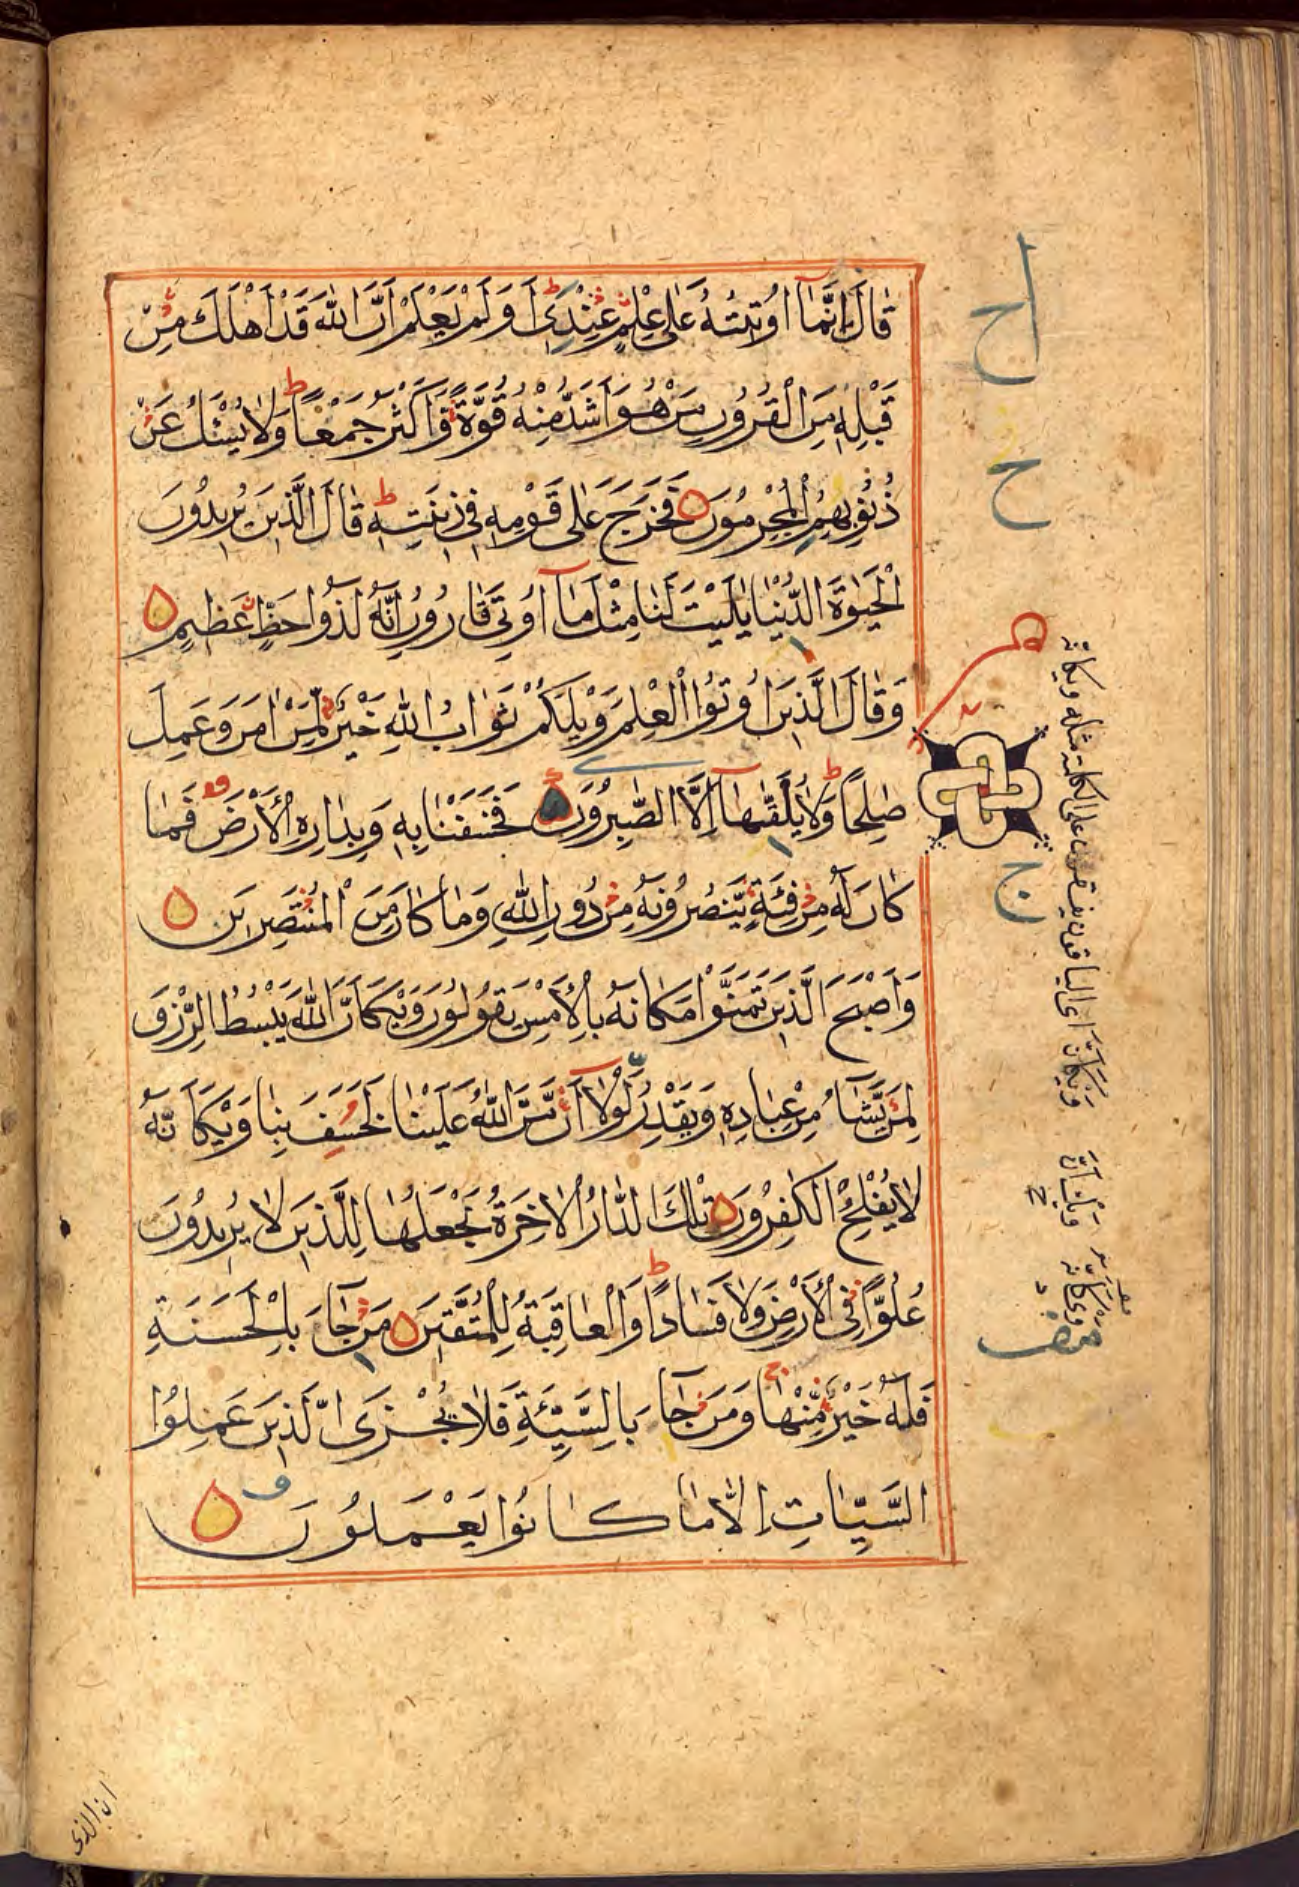 قَالَ اِنَّمَآ اُوتِيتُهُ عَلٰى عِلْمٍ عِنْدِىۡ اَوَلَمْ يَعْلَمْ اَنَّ اللّٰهَ قَدْ اَهْلَكَ مِنْ
قَبْلِهٖ مِنَ الْقُرُونِ مَنْ هُوَ اَشَدُّ مِنْهُ قُوَّةً وَاَكْثَرُ جَمْعًا ط وَلَا يُسْئَلُ عَنْ
ذُنُوبِهِمُ الْمُجْرِمُونَ فَخَرَجَ عَلٰى قَوْمِهٖ فِى زِينَتِهٖ ط قَالَ الَّذِينَ يُرِيدُونَ
الْحَيٰوةَ الدُّنْيَا يٰلَيْتَ لَنَا مِثْلَ مَآ اُوتِىَ قَارُونُ اِنَّهُ لَذُوا حَظٍّ عَظِيمٍ
وَقَالَ الَّذِينَ اُوتُوا الْعِلْمَ وَيْلَكُمْ ثَوَابُ اللّٰهِ خَيْرٌ لِمَنْ اٰمَنَ وَعَمِلَ
صٰلِحًا ط وَلَا يُلَقّٰهَآ اِلَّا الصّٰبِرُونَ فَخَسَفْنَا بِهٖ وَبِدَارِهِ الْاَرْضَ فَمَا
كَانَ لَهُ مِنْ فِئَةٍ يَنْصُرُونَهُ مِنْ دُونِ اللّٰهِ وَمَا كَانَ مِنَ الْمُنْتَصِرِينَ
وَاَصْبَحَ الَّذِينَ تَمَنَّوْا مَكَانَهُ بِالْاَمْسِ يَقُولُونَ وَيْكَاَنَّ اللّٰهَ يَبْسُطُ الرِّزْقَ
لِمَنْ يَشَآءُ مِنْ عِبَادِهٖ وَيَقْدِرُ لَوْلَآ اَنْ مَنَّ اللّٰهُ عَلَيْنَا لَخَسَفَ بِنَا وَيْكَاَنَّهُ
لَا يُفْلِحُ الْكٰفِرُونَ تِلْكَ الدَّارُ الْاٰخِرَةُ نَجْعَلُهَا لِلَّذِينَ لَا يُرِيدُونَ
عُلُوًّا فِى الْاَرْضِ وَلَا فَسَادًا ط وَالْعَاقِبَةُ لِلْمُتَّقِينَ مَنْ جَآءَ بِالْحَسَنَةِ
فَلَهُ خَيْرٌ مِنْهَا ج وَمَنْ جَآءَ بِالسَّيِّئَةِ فَلَا يُجْزَى الَّذِينَ عَمِلُوا
السَّيِّاٰتِ اِلَّا مَا كَانُوا يَعْمَلُونَ
ح
ج
ان الذى